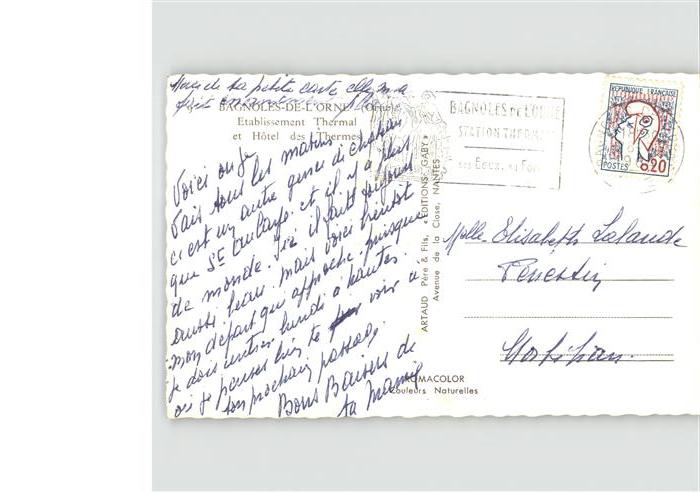 Merci de ta petite carte elle m'a
fait
BAGNOLES-DE-L'ORNE (Orne)
Etablissement Thermal
et Hôtel des Thermes
Voici où je
vais tous les matins
c'est un autre genre de château
que St Eulaye et il y a plus
de monde. Ici il fait toujours
aussi beau, mais voici bientôt
mon départ qui approche, puisque
je dois rentrer lundi à Nantes.
où je pense bien te voir à
ton prochain passage.
Bons Baisers de
ta Mamy
ARTAUD Père & Fils, « EDITIONS GABY »
Avenue de la Close, NANTES
ROMACOLOR
Couleurs Naturelles
BAGNOLES DE L'ORNE
STATION THERMALE
REPUBLIQUE FRANÇAISE
POSTES 0.20
Melle Elisabeth Lalande
Penestin
Morbihan.